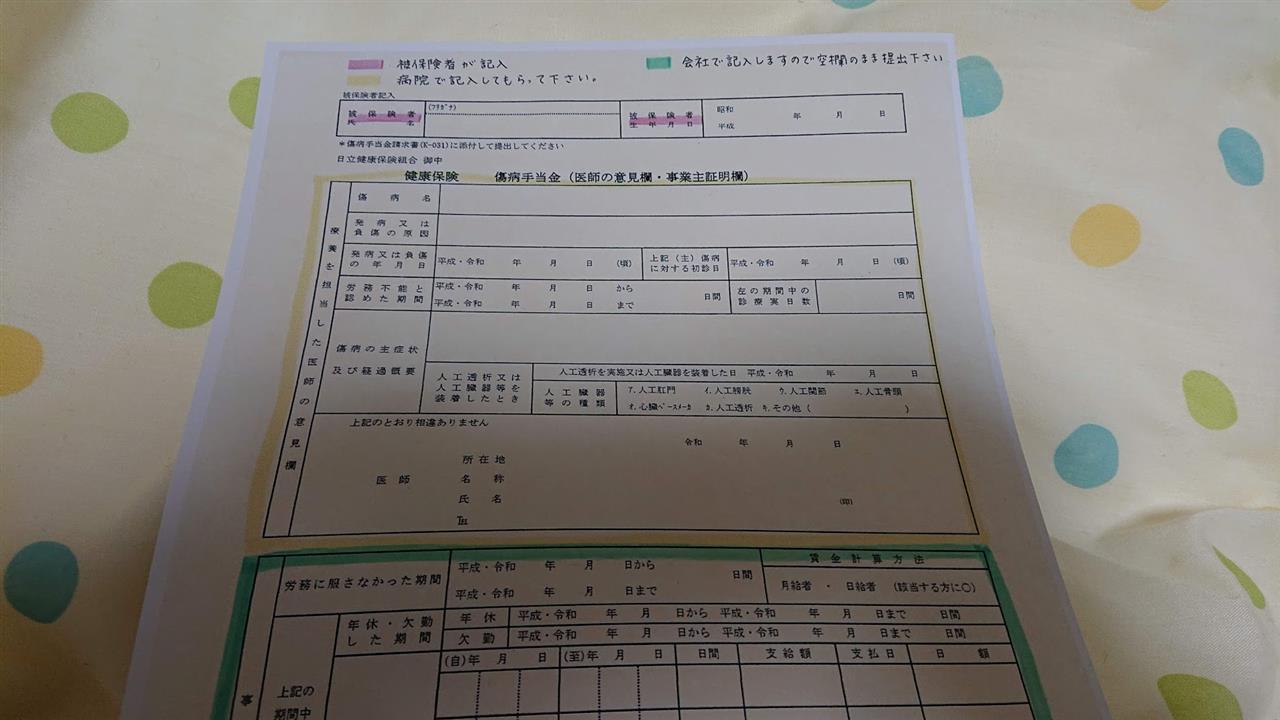 被保険者が記入
会社で記入しますので空欄のまま提出下さい
病院で記入してもらって下さい。
被保険者記入
被保険者氏名
(フリガナ)
被保険者生年月日
昭和
平成
年 月 日
*傷病手当金請求書(K-031)に添付して提出してください
日立健康保険組合 御中
健康保険 傷病手当金(医師の意見欄・事業主証明欄)
療養を担当した医師の意見欄
傷病名
発病又は
負傷の原因
発病又は負傷
の年月日
平成・令和 年 月 日 (頃)
上記(主)傷病
に対する初診日
平成・令和 年 月 日 (頃)
労務不能と
認めた期間
平成・令和 年 月 日 から
平成・令和 年 月 日 まで
日間
左の期間中の
診療実日数
日間
傷病の主症状
及び経過概要
人工透析又は
人工臓器等を
装着したとき
人工透析を実施又は人工臓器を装着した日 平成・令和 年 月 日
人工臓器
等の種類
ア.人工肛門 イ.人工膀胱 ウ.人工関節 エ.人工骨頭
オ.心臓ペースメーカ カ.人工透析 キ.その他( )
上記のとおり相違ありません
令和 年 月 日
医師
所在地
名称
氏名
(印)
℡
事
労務に服さなかった期間
平成・令和 年 月 日から
平成・令和 年 月 日まで
日間
賃金計算方法
月給者 ・ 日給者 (該当する方に○)
年休・欠勤
した期間
年休 平成・令和 年 月 日から 平成・令和 年 月 日まで 日間
欠勤 平成・令和 年 月 日から 平成・令和 年 月 日まで 日間
上記の
期間中
(自)年 月 日 (至)年 月 日 日間 支給額 支払日 日額